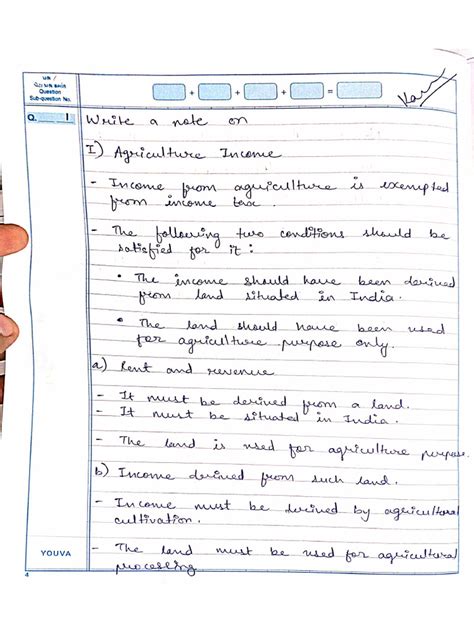 Question
Sub-question No.
+ + + =
Q. 1 Write a note on
I) Agriculture Income
- Income from agriculture is exempted
from income tax.
- The following two conditions should be
satisfied for it :
• The income should have been derived
from land situated in India.
• The land should have been used
for agriculture purpose only.
a) Rent and revenue
- It must be derived from a land.
- It must be situated in India.
- The land is used for agriculture purpose.
b) Income derived from such land.
- Income must be derived by agricultural
cultivation.
- The land must be used for agricultural
processing
YOUVA
4